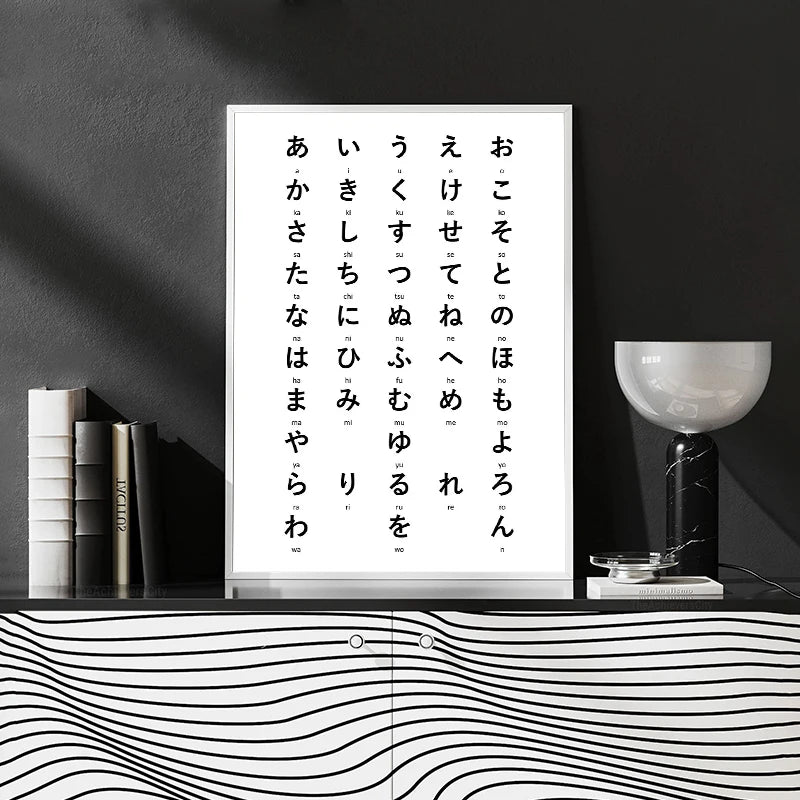 あ い う え お
a i u e o
か き く け こ
ka ki ku ke ko
さ し す せ そ
sa shi su se so
た ち つ て と
ta chi tsu te to
な に ぬ ね の
na ni nu ne no
は ひ ふ へ ほ
ha hi fu he ho
ま み む め も
ma mi mu me mo
や ゆ よ
ya yu yo
ら り る れ ろ
ra ri ru re ro
わ を ん
wa wo n
minimalismo
TheAchieversCity
TheAchieversCity